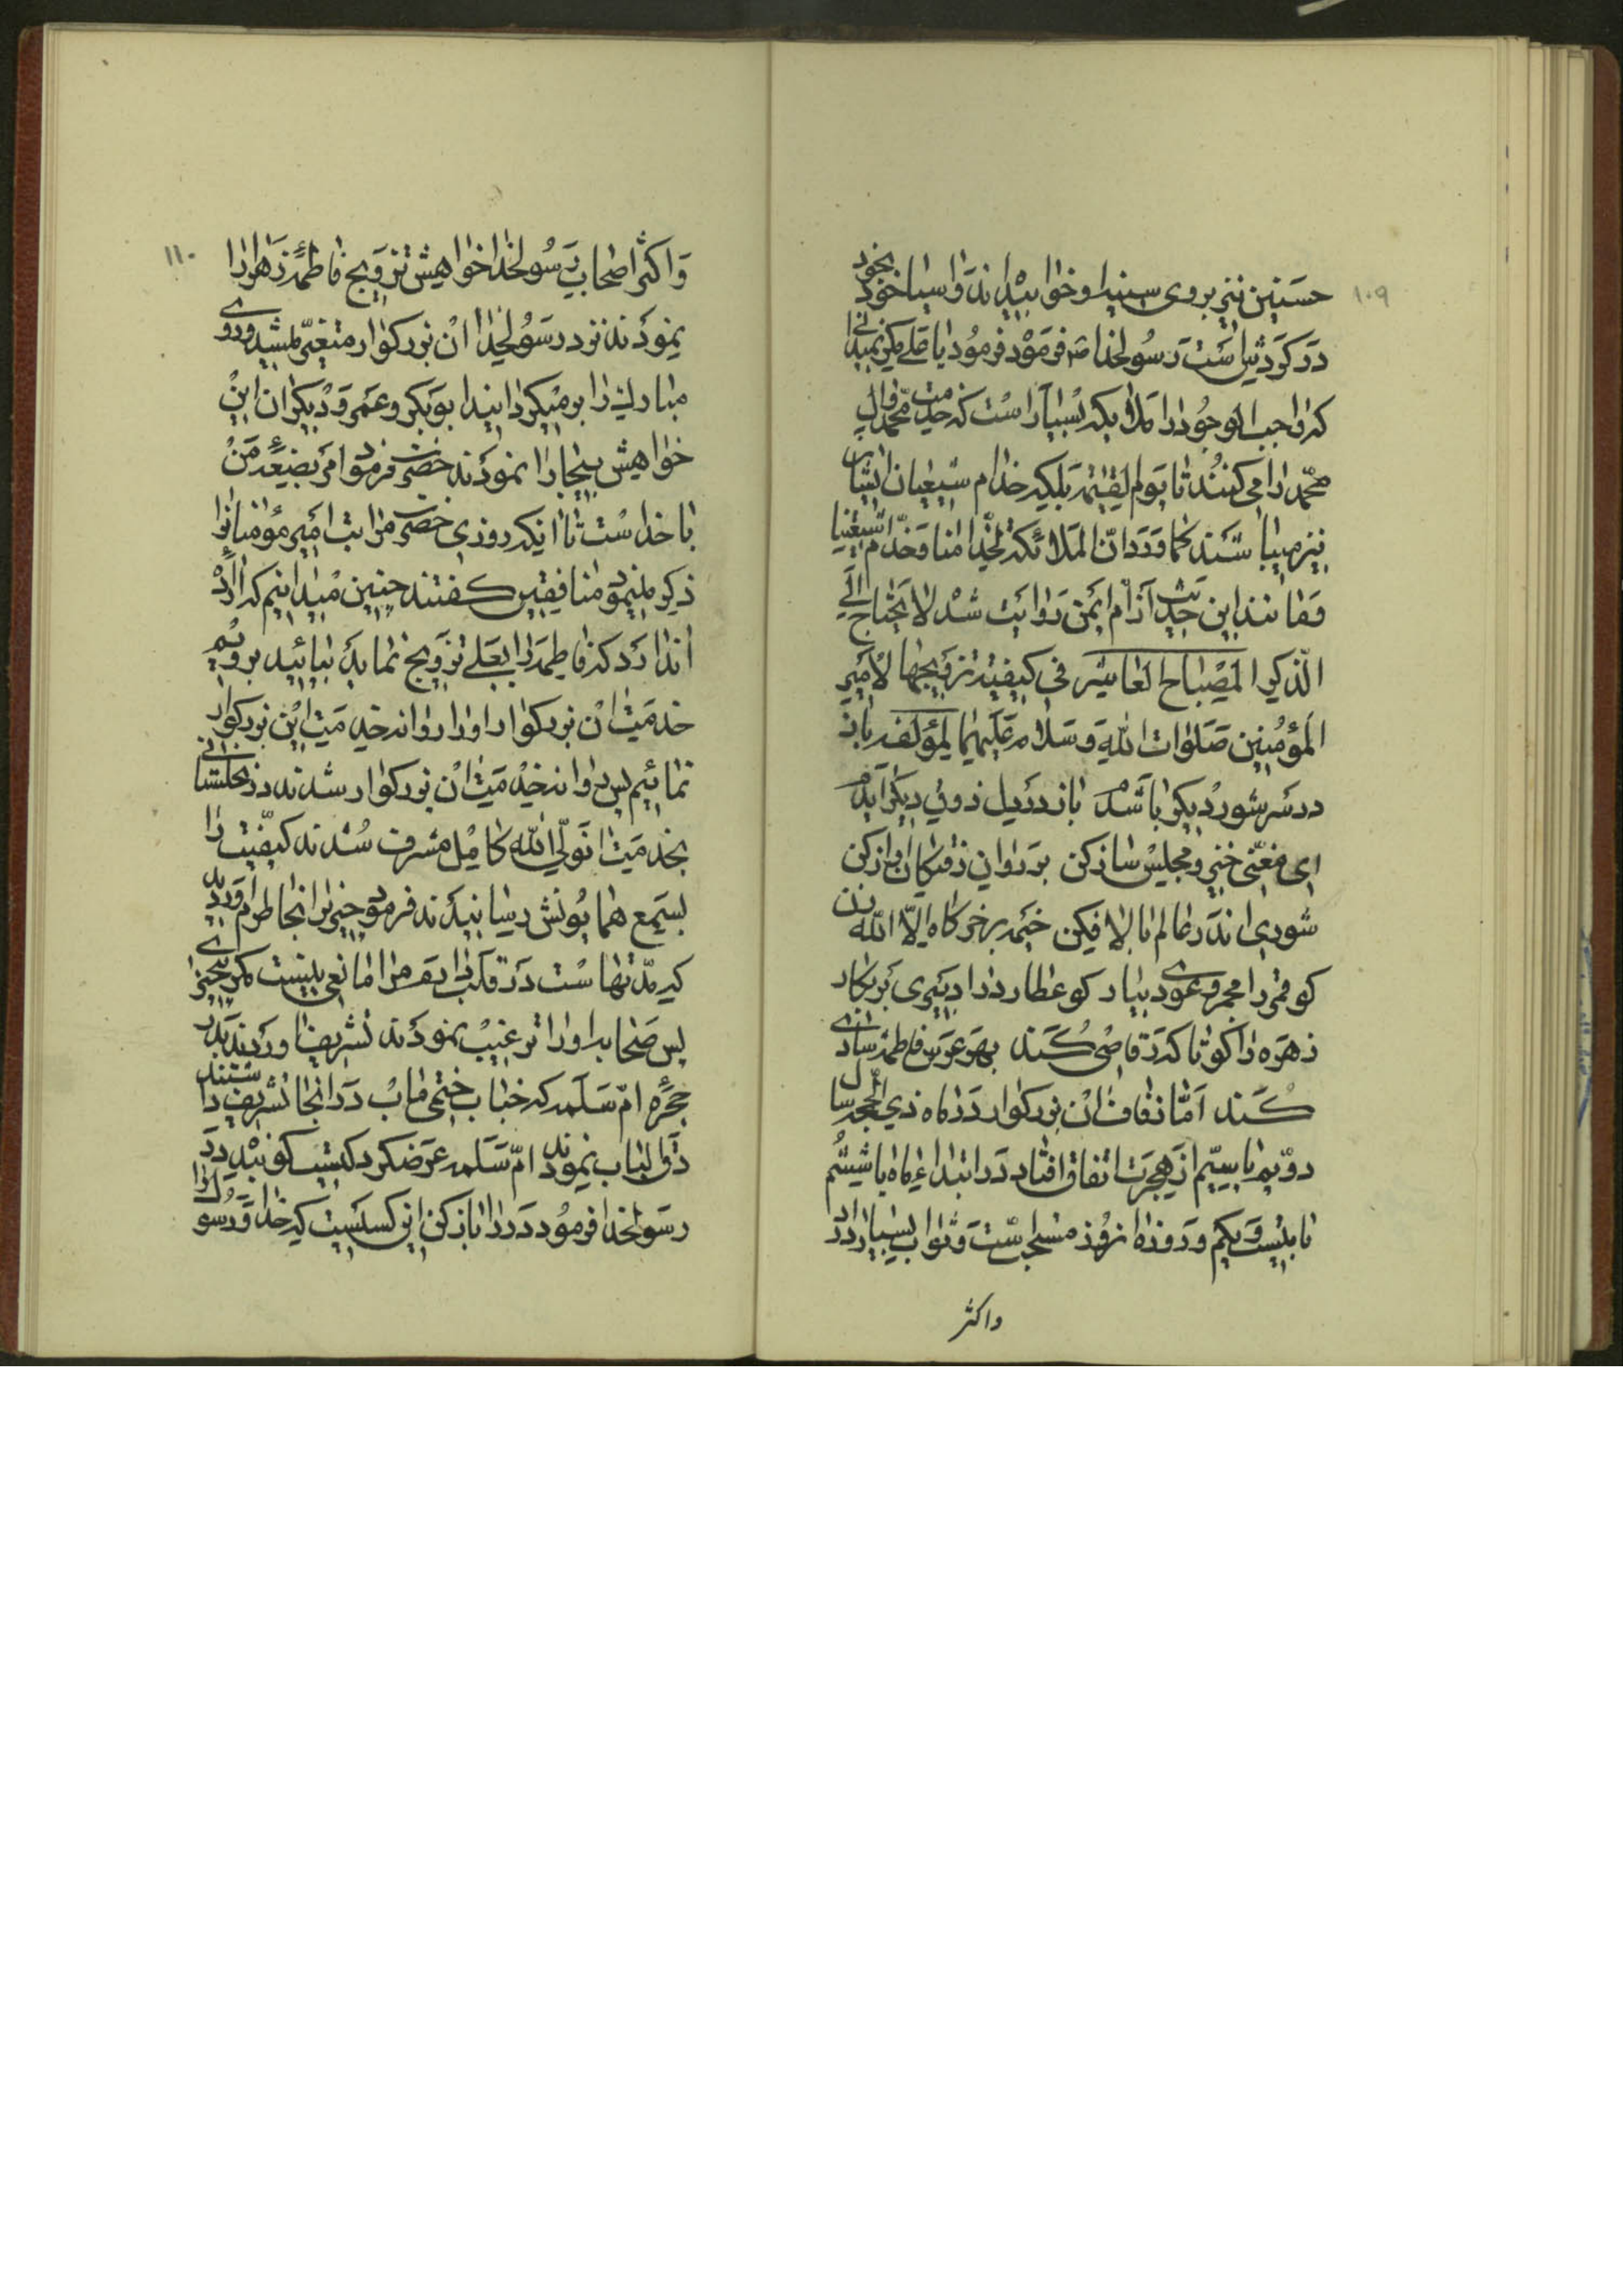 ۱۰۹
حسنین نیز بروی سینه او خوابیده اند و اسیا خود بخود
در کردش است رسولخدا فرمود یا علی مکر نمیدانی
که واجب الوجود را ملایکه بسیار است که خدمت محمد و ال
محمد را می کنند تا یوم القیمه بلکه خدام شیعیان ایشان
نیز میباشند کما ورد ان الملائکة لخدامنا و خدام شیعتنا
و مانند این حدیث از ام ایمن روایت شد لا یحتاج الی
الذکر المصباح العاشر فی کیفیة تزویجها لامیر
المؤمنین صلوات الله و سلامه علیهما لمؤلفه باز
در سر شور دیکر باشدم باز در دل ذوق دیکر آیدم
ای مغنی خیز و مجلس ساز کن
شوری اندر عالم بالا فکن خیمه بر خرکاه الا الله زن
کو قمر را مجمر و عودی بیار کو عطارد را دبیری بر نکار
زهره را کو تا که رقاصی کند بهر عروس فاطمه شادی
کند اما زفاف ان بزرکوار در ماه ذی الحجه سال
دویم یا سیم از هجرت اتفاق افتاد در ابتداء ماه یا ششم
یا بیست و یکم و روزه انروز مستحبست و ثواب بسیار دارد
واکثر
۱۱۰
و اکثر اصحاب رسولخدا خواهش تزویج فاطمه زهرا را
نمودند نزد رسولخدا ان بزرکوار متغیر میشد و روی
مبارک را بر میکردانید ابوبکر و عمر و دیکران این
خواهش بیجا را نمودند حضرت فرمود امر بضعه من
با خداست تا اینکه روزی حضرت مراتب امیر مؤمنانرا
ذکر مینمود منافقین کفتند چنین میدانیم که اراده
اندارد که فاطمه را بعلی تزویج نماید بیائید برویم
خدمت ان بزرکوار او را روانه خدمت این بزرکوار
نمائیم پس روانه خدمت ان بزرکوار شدند در نخلستانی
بخدمت انولی الله کامل مشرف شدند کیفیت را
بسمع همایونش رسانیدند فرمود چیزیرا بخاطرم اوردید
که مدتهاست در قلب دارم مرا مانعی نیست مکر بیچیزی
پس صحابه او را ترغیب نمودند تشریف اوردند بدر
حجره ام سلمه که جناب ختمی ماب در انجا تشریف داشتند
دق الباب نمودند ام سلمه عرضکرد کیست کوبنده در
رسولخدا فرمود در را باز کن این کسیست که خدا و رسول او را